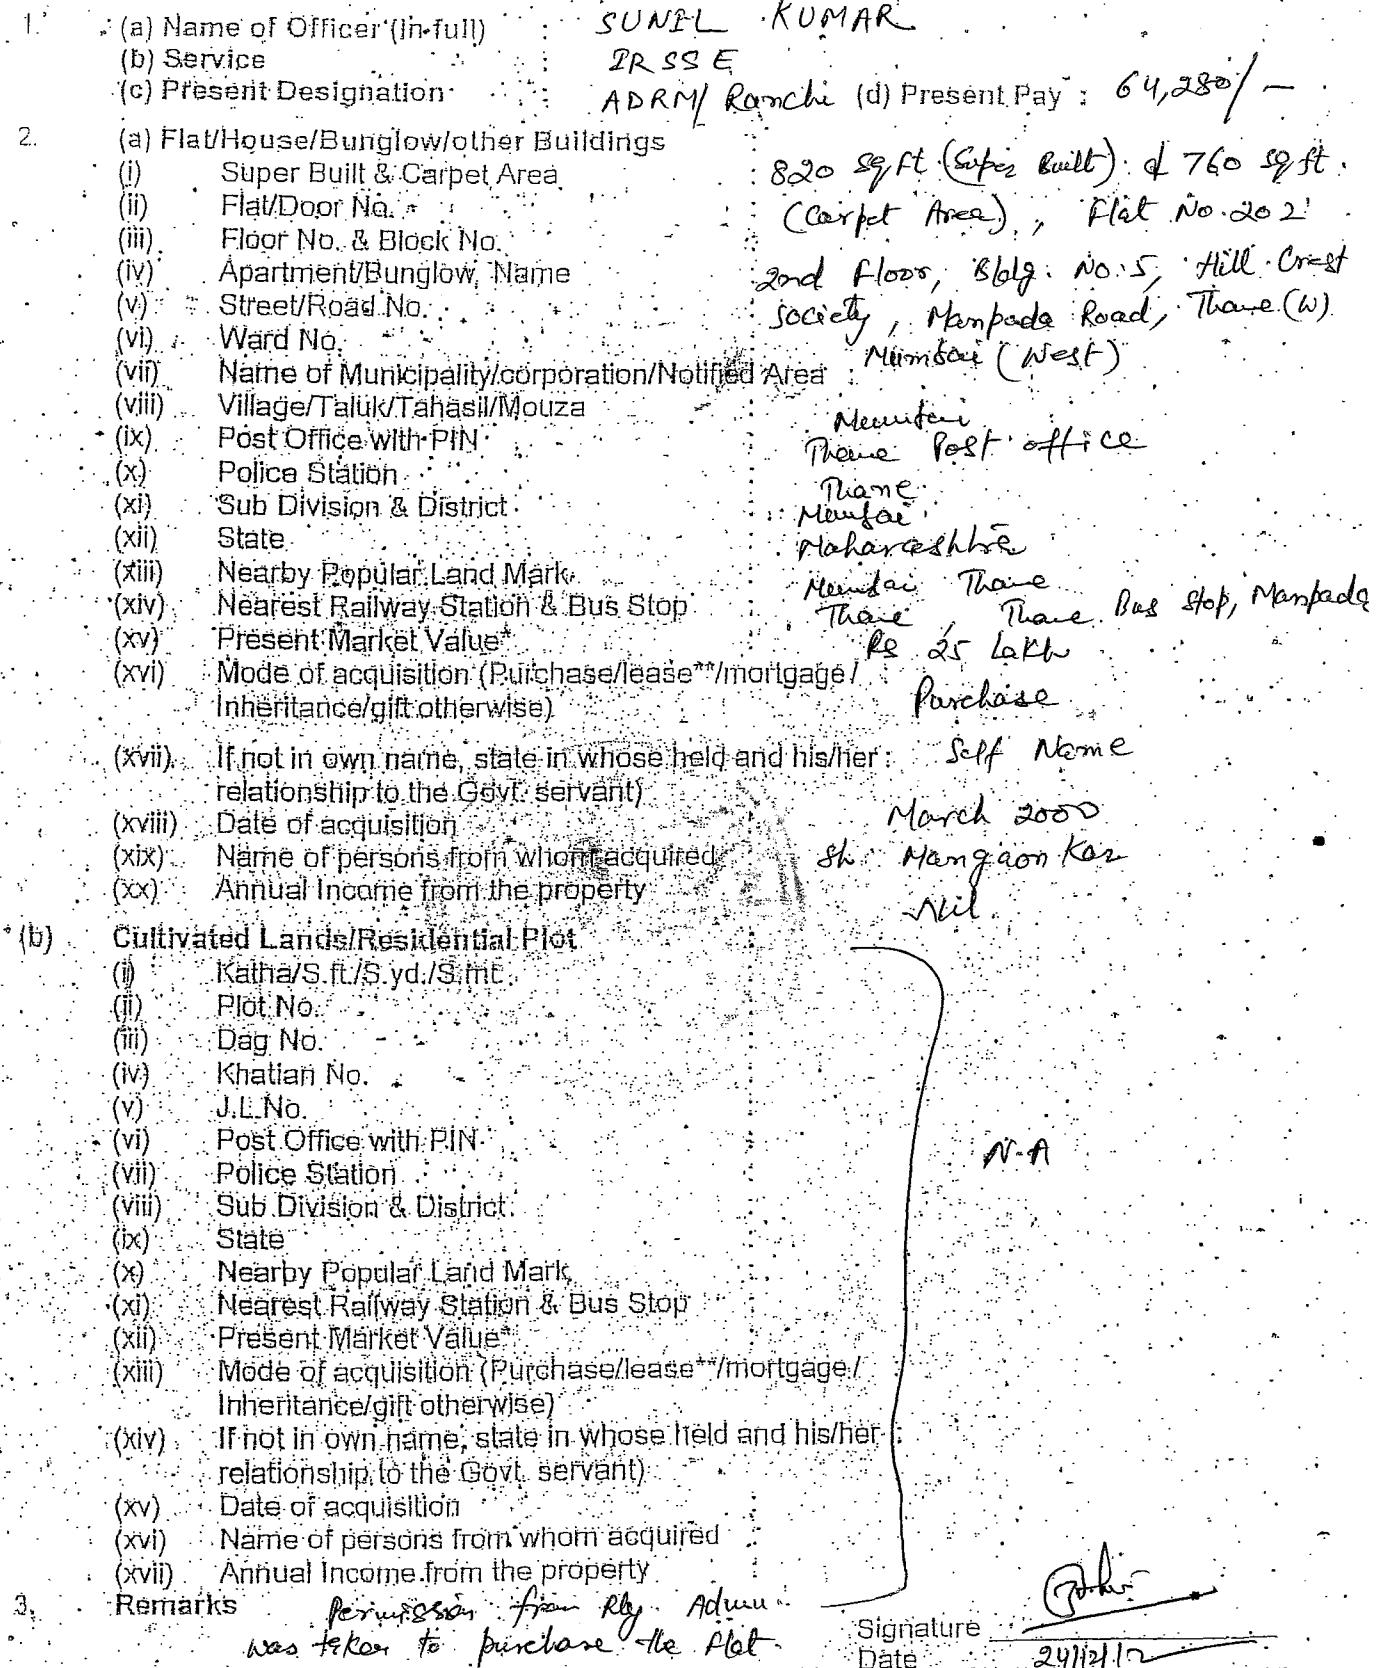 1. (a) Name of Officer (in-full) : SUNIL KUMAR
(b) Service : IRSSE
(c) Present Designation : ADRM/ Ranchi (d) Present Pay : 64,280/-
2. (a) Flat/House/Bunglow/other Buildings
(i) Super Built & Carpet Area : 820 Sq,ft (Super Built) & 760 sq ft.
(ii) Flat/Door No. : (Carpet Area), Flat No. 202
(iii) Floor No. & Block No.
(iv) Apartment/Bunglow, Name : 2nd Floor, Bldg. No. 5, Hill Crest
(v) Street/Road No. : Society, Manpada Road, Thane (W)
(vi) Ward No.
(vii) Name of Municipality/corporation/Notified Area : Mumbai (West)
(viii) Village/Taluk/Tahasil/Mouza : Mumbai
(ix) Post Office with PIN : Thane Post office
(x) Police Station : Thane
(xi) Sub Division & District : Mumbai
(xii) State : Maharashtra
(xiii) Nearby Popular Land Mark : Mumbai Thane
(xiv) Nearest Railway Station & Bus Stop : Thane, Thane Bus Stop, Manpada
(xv) Present Market Value* : Rs 25 Lakh
(xvi) Mode of acquisition (Purchase/lease**/mortgage/ :
Inheritance/gift otherwise) Purchase
(xvii) If not in own name, state in whose held and his/her : Self Name
relationship to the Govt. servant)
(xviii) Date of acquisition March 2000
(xix) Name of persons from whom acquired Sh. Mangaonkar
(xx) Annual Income from the property Nil
(b) Cultivated Lands/Residential Plot
(i) Katha/S.ft./S.yd./S.mt.
(ii) Plot No.
(iii) Dag No.
(iv) Khatian No.
(v) J.L.No.
(vi) Post Office with PIN N.A
(vii) Police Station
(viii) Sub Division & District
(ix) State
(x) Nearby Popular Land Mark
(xi) Nearest Railway Station & Bus Stop
(xii) Present Market Value*
(xiii) Mode of acquisition (Purchase/lease**/mortgage/
Inheritance/gift otherwise)
(xiv) If not in own name, state in whose held and his/her :
relationship to the Govt. servant)
(xv) Date of acquisition
(xvi) Name of persons from whom acquired
(xvii) Annual Income from the property
3. Remarks Permission from Rly. Admn.
was taken to purchase the flat.
Signature
Date 24/12/12